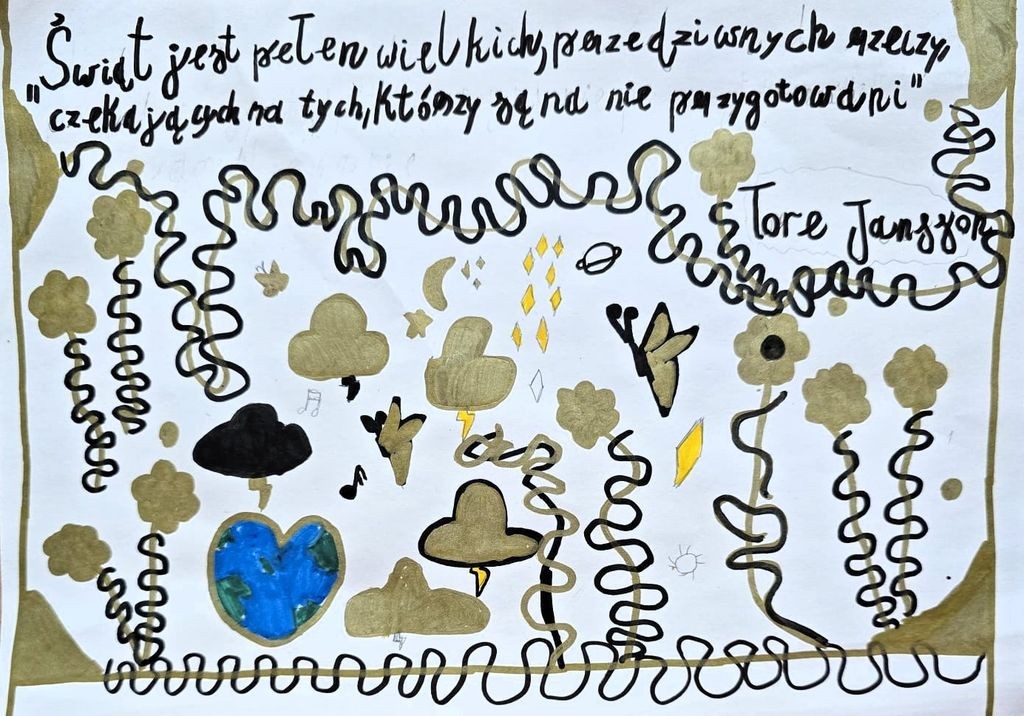 Świąt jest pełen wielkich, przedziwnych rzeczy,
"czekających na tych, którzy są na nie przygotowani"
Tore Jansson